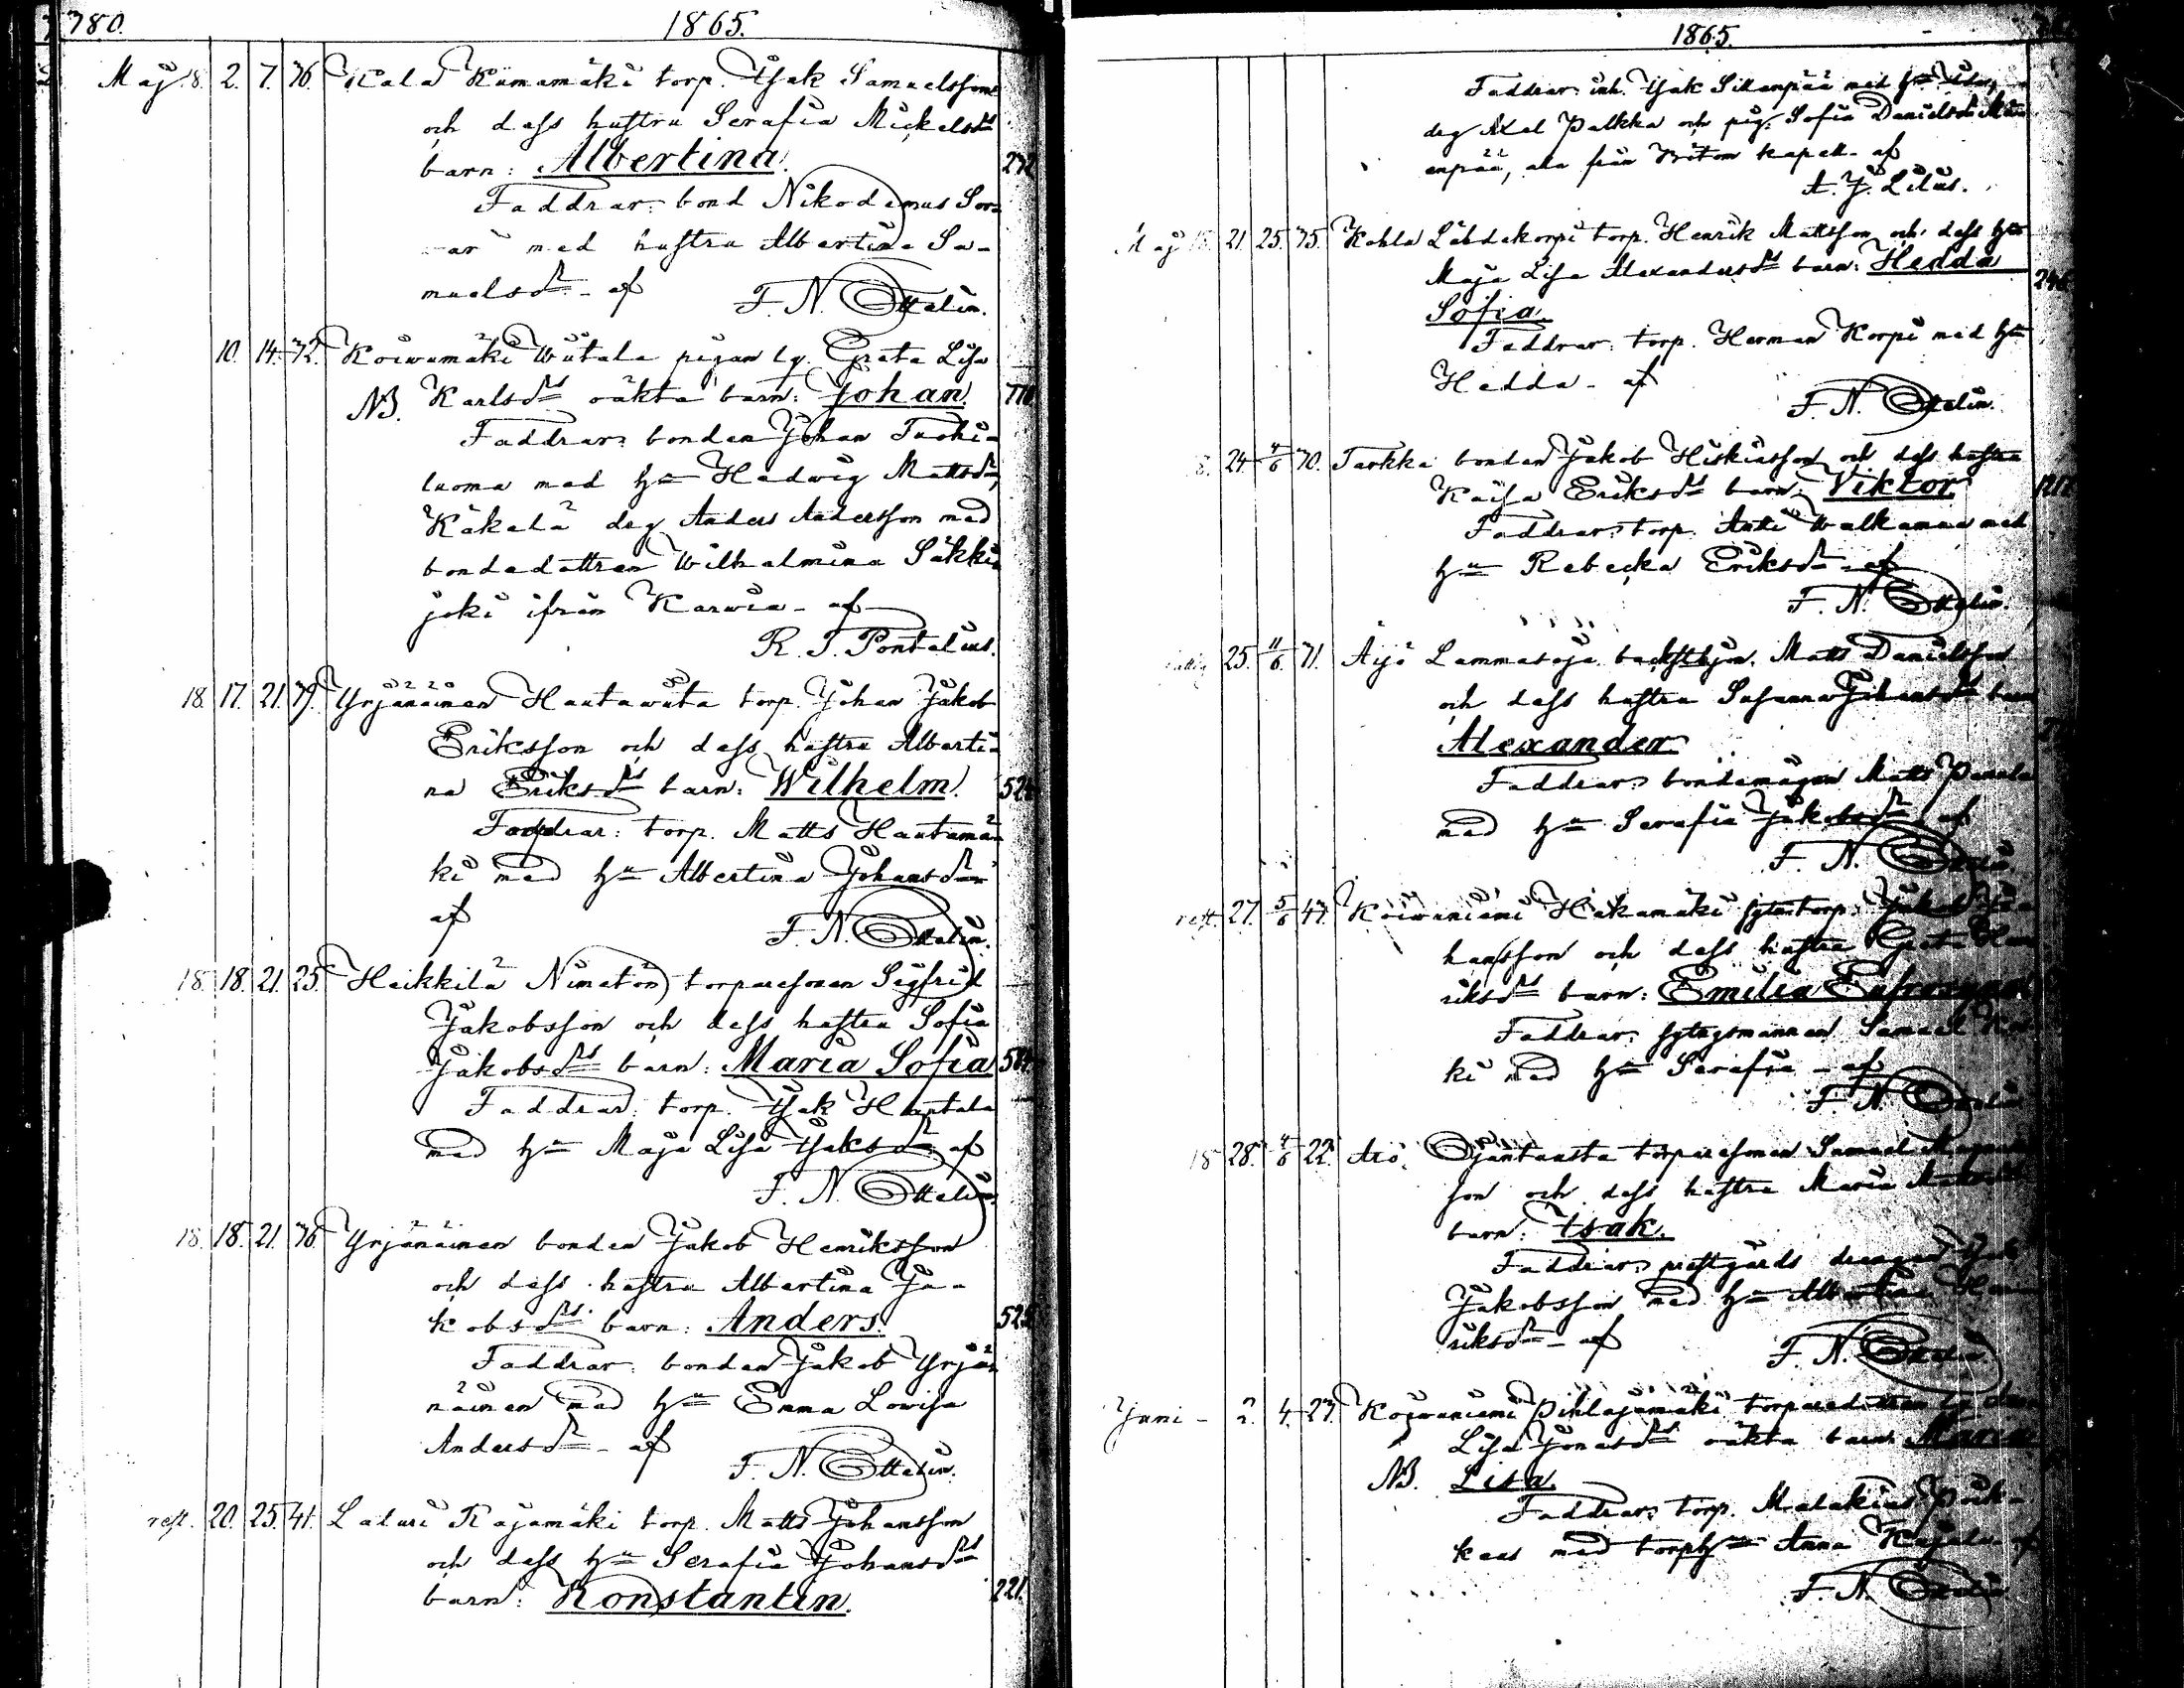 780. 1865.
Maj. 18. 2. 7. 76. Kala Kiimamäki torp. Isak Samuelsson
och dess hustru Serafia Mickelsdrs
barn: Albertina. 272
Faddrar: bond Nikodemus Sor-
ar med hustru Albertina Sa-
muelsdr - af F. N. Ottelin.
10. 14. 72. Koiwumäki Wiitala pigan lg. Greta Lisa
NB. Karlsdrs oäkta barn: Johan. 770
Faddrar: bonden Johan Tuohi-
luoma med hu Hedwig Mattsdr,
Käkelä drg Anders Andersson med
bondedottren Wilhelmina Säkki-
joki ifrån Karwia - af
R. I. Pontelius.
18. 17. 21. 79. Yrjänäinen Hautawiita torp. Johan Jakob
Eriksson och dess hustru Alberti-
na Eriksdrs barn: Wilhelm. 524
Faddrar: torp. Matts Hautamä-
ki med hu Albertina Johansdr
af F. N. Ottelin.
18. 18. 21. 25. Heikkilä Nimetön torparesonen Sigfrid
Jakobsson och dess hustru Sofia
Jakobsdrs barn: Maria Sofia 584
Faddrar: torp. Isak Hantala
med hu Maja Lisa Isaksdr af
F. N. Ottelin.
18. 18. 21. 36. Yrjänäinen bonden Jakob Henriksson
och dess hustru Albertina Ja-
kobsdrs barn: Anders. 525
Faddrar: bonden Jakob Yrjä-
näinen med hu Emma Lovisa
Andersdr - af F. N. Ottelin.
rest. 20. 25. 41. Laturi Rajamäki torp. Matts Johansson
och dess hu Serafia Johansdrs
barn: Konstantin. 221.
1865.
Faddrar: inh. Isak Sillanpää med hu
drg Axel Palkka och pig. Sofia Danielsdr
enpää, alla från kapell - af
A. J. Lilius.
Maj 18. 21. 25. 75. Kohla Lähdekorpi torp. Henrik Mattsson och dess hu
Maja Lisa Alexandersdrs barn: Hedda 246
Sofia.
Faddrar: torp. Herman Korpi med hu
Hedda - af
F. N. Ottelin.
8. 24. 4/6 70. Tarkka bonden Jakob Hiskiasson och dess hustru
Kaisa Eriksdrs barn: Viktor
Faddrar: torp. Anti Walkamaa med
hu Rebecka Eriksdr - af
F. N. Ottelin.
25. 11/6. 71. Äijö Lammasoja backstusjon. Matts Danielsson
och dess hustru Susanna Johansdrs barn
Alexander
Faddrar: bondemågen Matts Panula
med hu Serafia Jakobsdr af
F. N. Ottelin.
rest. 27. 5/6 47. Koiwuniemi Hakamäki sytn.torp. Jakob Jo-
hansson och dess hustru Greta Hen-
riksdrs barn: Emilia Eufrosyne
Faddrar: sytngsmannen Samuel Kos-
ki med hu Serafia - af
F. N. Ottelin
18 28. 4/6 22. Aro, Ojantausta torparesonen Samuel
son och dess hustru Maria
barn: Isak.
Faddrar: prestgårds drengen Isak
Jakobsson med hu Albertina Hen-
riksdr - af F. N. Ottelin
Juni - 2. 4. 27. Koiwuniemi Pihlajamäki torparedottren lg
Lisa Jonasdrs oäkta barn Maria
NB. Lisa.
Faddrar: torp. Malakias Pärk-
kas med torphu Anna Kajala af
F. N. Ottelin